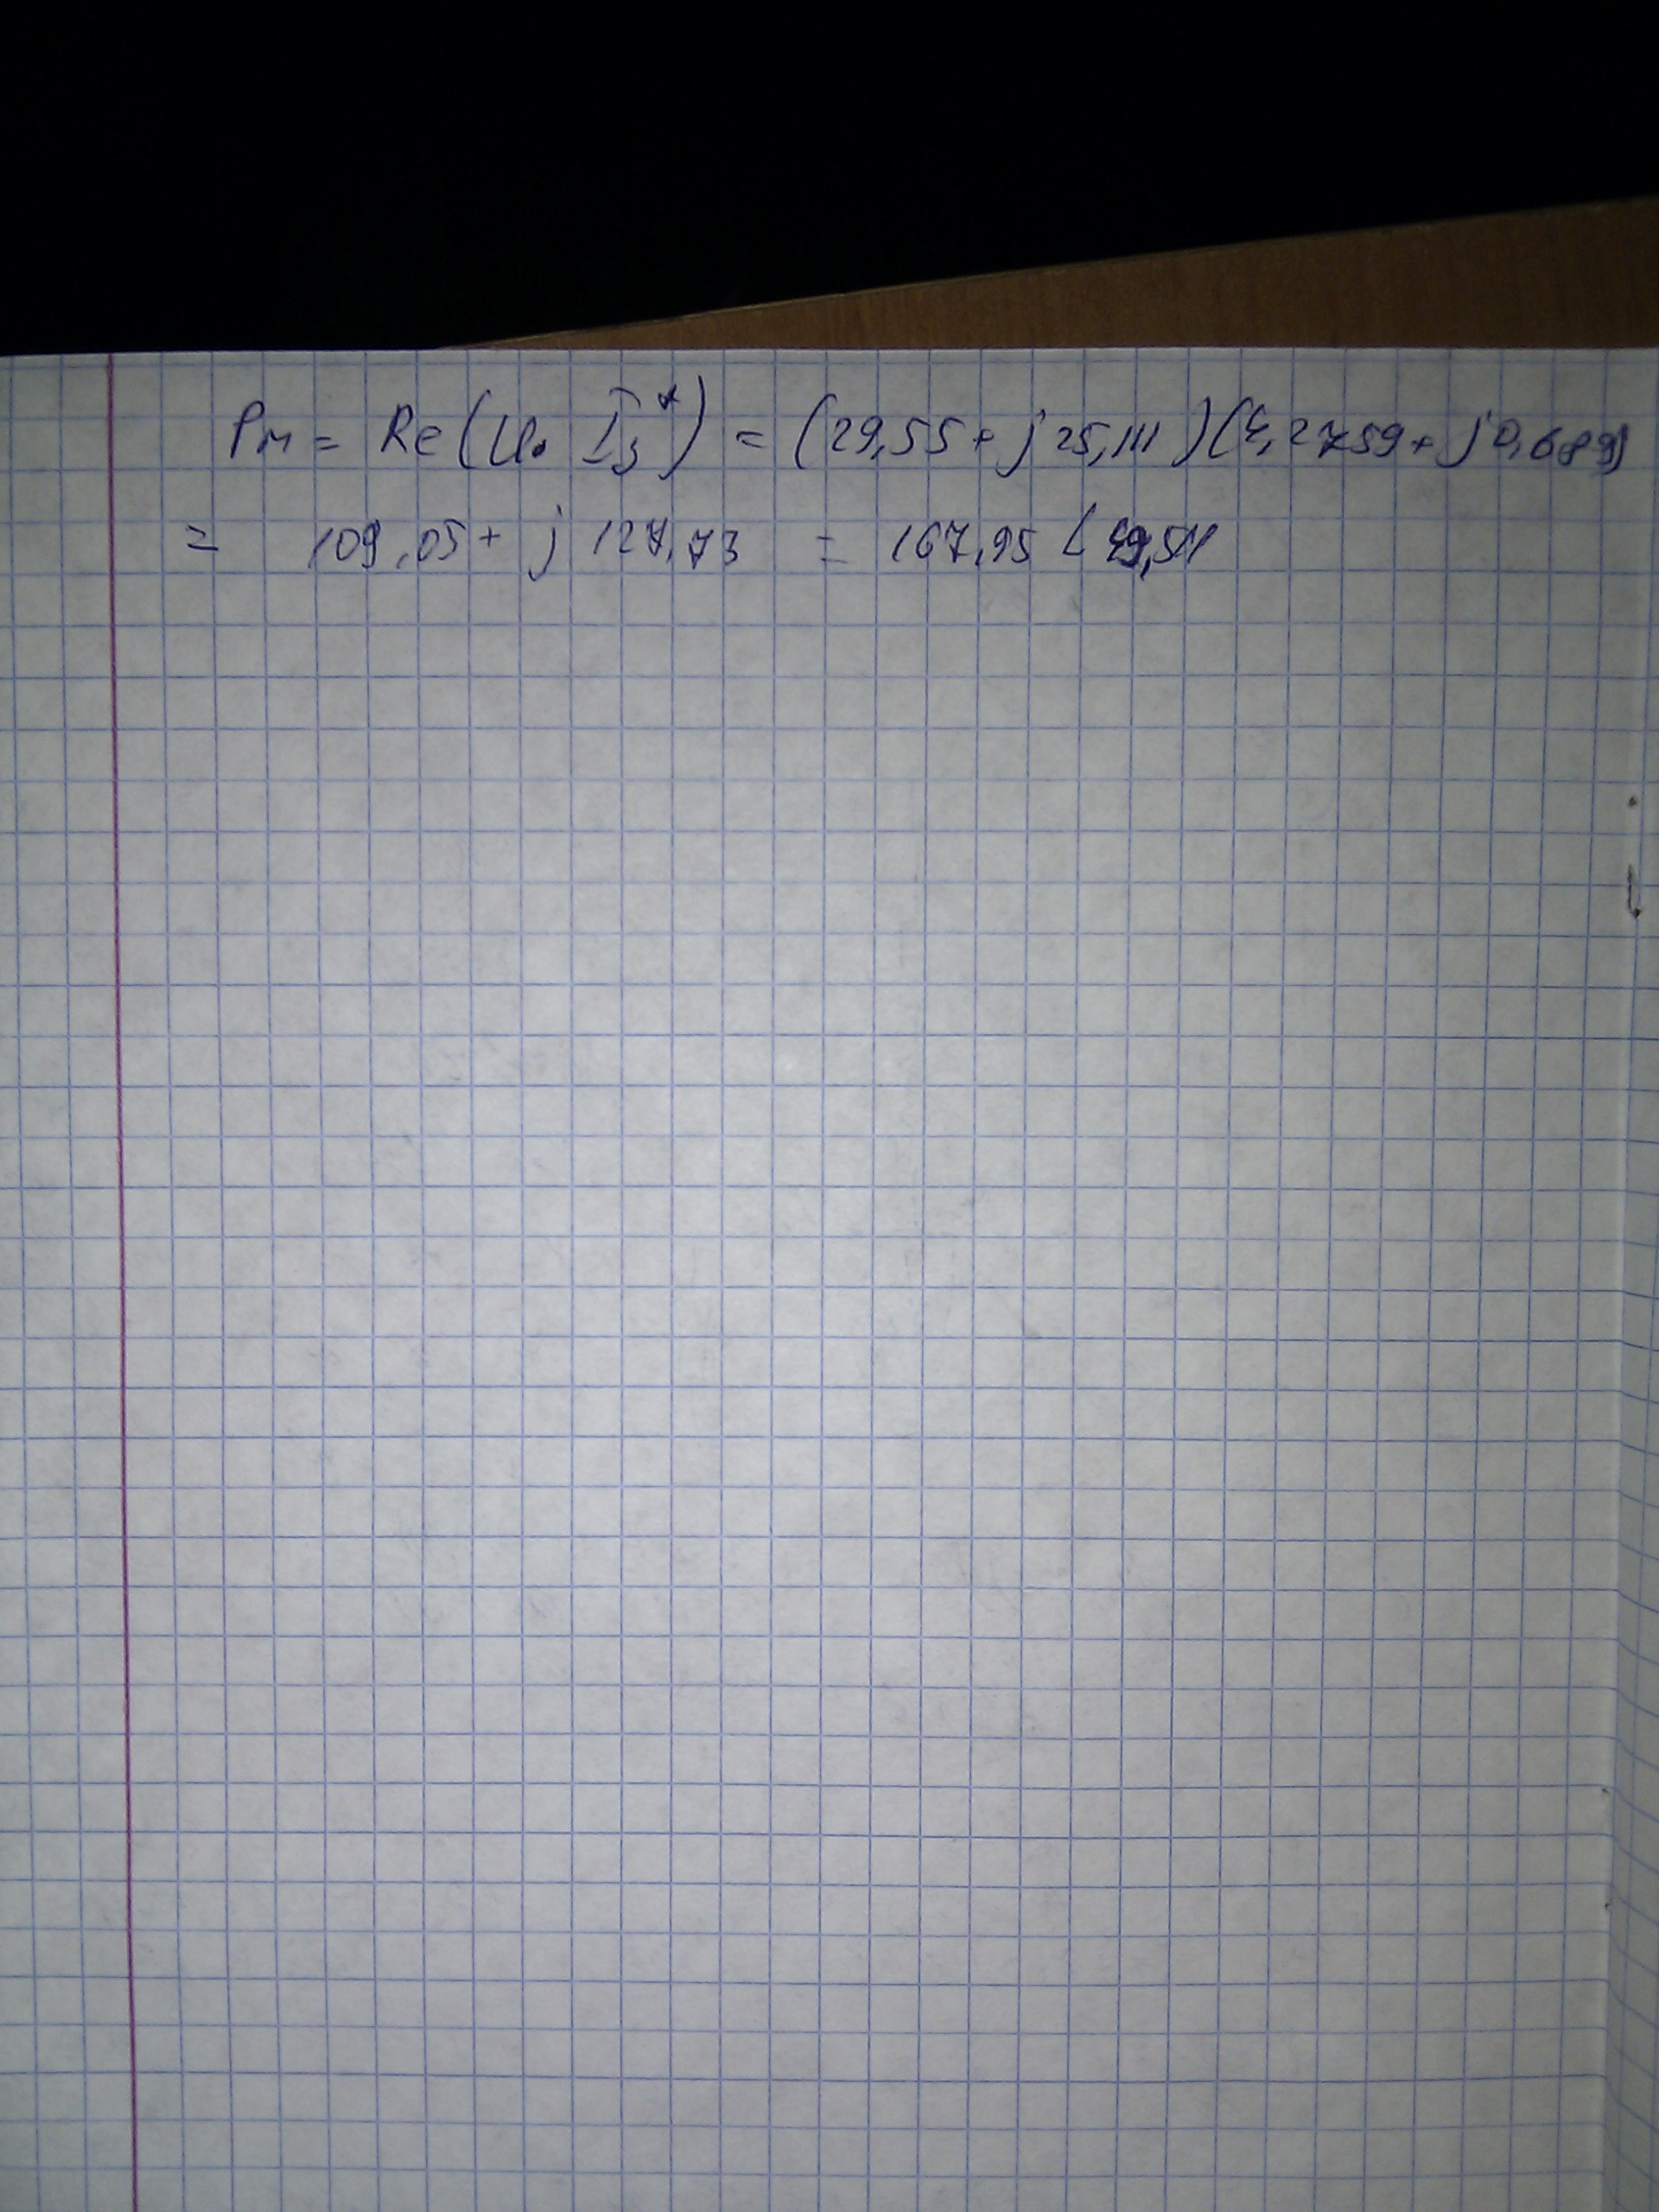 Pм = Re(U₀ I₃*) = (29,55 + j 25,111)(4,2759 + j0,689)
= 109,05 + j 127,73 = 167,95 ∠ 49,511